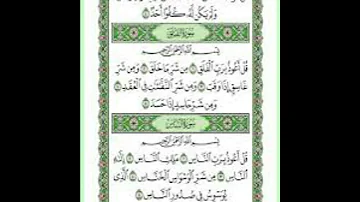 وَلَمْ يَكُن لَّهُ كُفُوًا أَحَدٌ
سُورَةُ الفَلَقِ
بِسْمِ اللَّهِ الرَّحْمَٰنِ الرَّحِيمِ
قُلْ أَعُوذُ بِرَبِّ الْفَلَقِ مِن شَرِّ مَا خَلَقَ وَمِن شَرِّ
غَاسِقٍ إِذَا وَقَبَ وَمِن شَرِّ النَّفَّاثَاتِ فِي الْعُقَدِ
وَمِن شَرِّ حَاسِدٍ إِذَا حَسَدَ
سُورَةُ النَّاسِ
بِسْمِ اللَّهِ الرَّحْمَٰنِ الرَّحِيمِ
قُلْ أَعُوذُ بِرَبِّ النَّاسِ مَلِكِ النَّاسِ إِلَٰهِ
النَّاسِ مِن شَرِّ الْوَسْوَاسِ الْخَنَّاسِ الَّذِي
يُوَسْوِسُ فِي صُدُورِ النَّاسِ